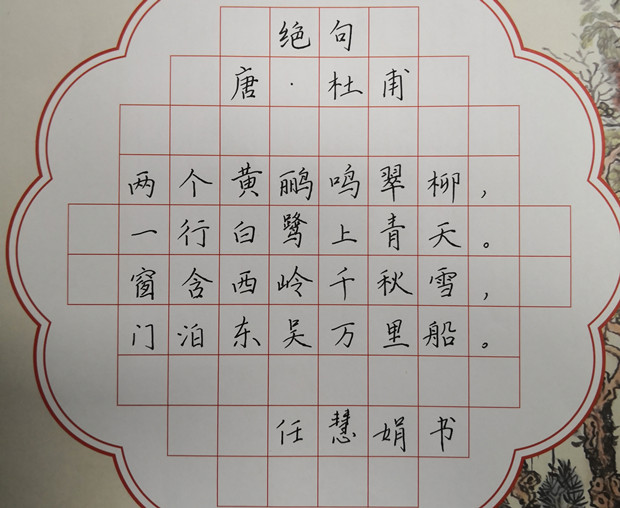 绝句
唐·杜甫
两个黄鹂鸣翠柳，
一行白鹭上青天。
窗含西岭千秋雪，
门泊东吴万里船。
任慧娟书